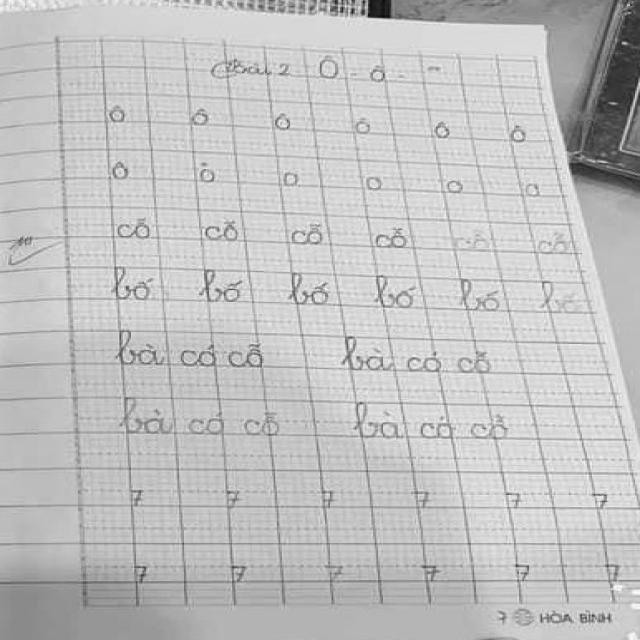 Bài 2 Ô - ô - ~
ô ô ô ô ô ô
ô ô o o o o
cỗ cỗ cỗ cỗ cỗ cỗ
bố bố bố bố bố bố
bà có cỗ bà có cỗ
bà có cỗ bà có cỗ
7 7 7 7 7 7
7 7 7 7 7 7
7 HÒA BÌNH